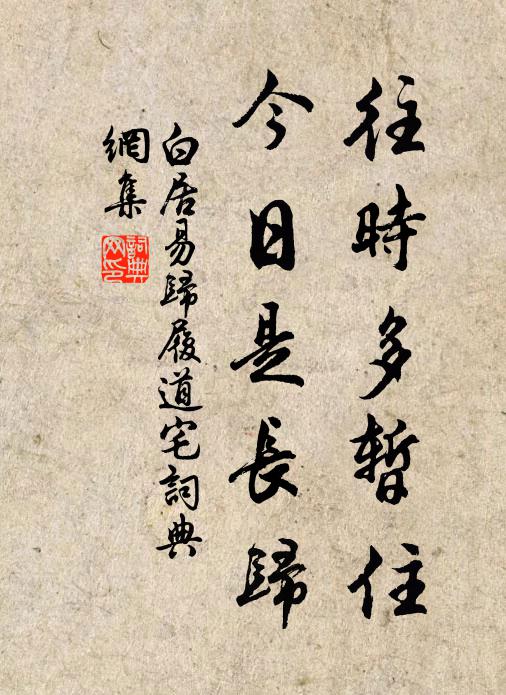 往時多暫住
今日是長歸
白居易歸履道宅詞典
網集
詞典
网印